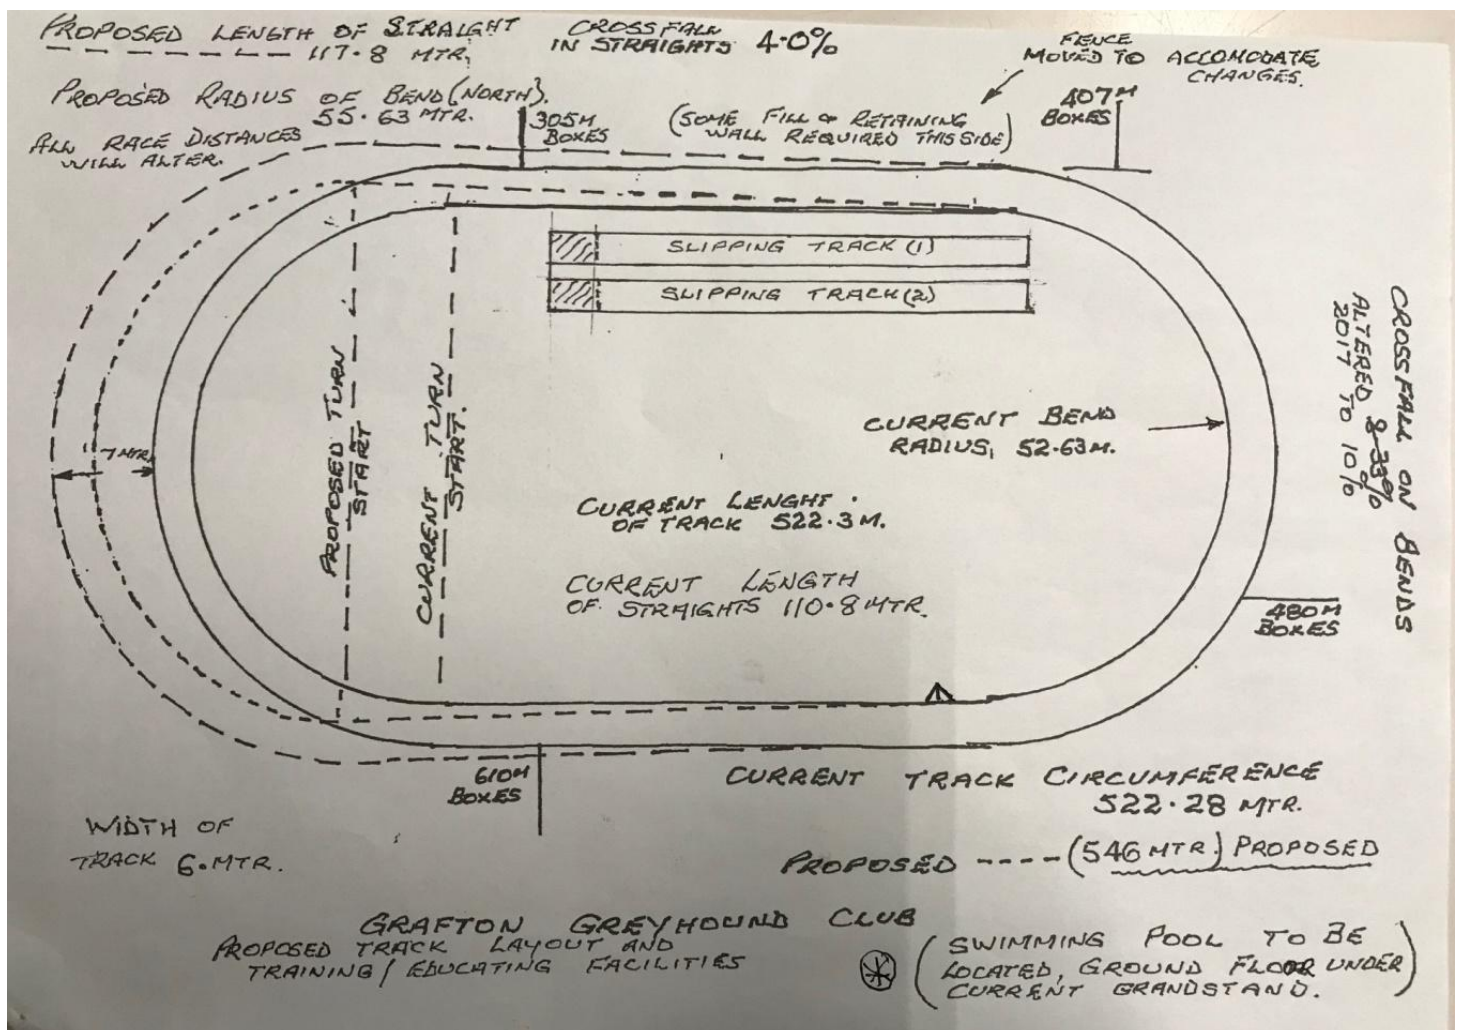 PROPOSED LENGTH OF STRAIGHT
117.8 MTR.
CROSSFALL
IN STRAIGHTS 4.0%
FENCE
MOVED TO ACCOMODATE
CHANGES.
PROPOSED RADIUS OF BEND (NORTH).
55.63 MTR.
ALL RACE DISTANCES
WILL ALTER.
305M
BOXES
(SOME FILL & RETAINING
WALL REQUIRED THIS SIDE)
407M
BOXES
SLIPPING TRACK (1)
SLIPPING TRACK (2)
CROSSFALL ON BENDS
ALTERED 8.33%
2017 TO 10%
PROPOSED TURN
START
CURRENT TURN
START.
7 MTR.
CURRENT BEND
RADIUS, 52.63M.
CURRENT LENGHT
OF TRACK 522.3M.
CURRENT LENGTH
OF STRAIGHTS 110.8 MTR.
480M
BOXES
610M
BOXES
CURRENT TRACK CIRCUMFERENCE
522.28 MTR.
WIDTH OF
TRACK 6.MTR.
PROPOSED ---- (546 MTR) PROPOSED
GRAFTON GREYHOUND CLUB
PROPOSED TRACK LAYOUT AND
TRAINING / EDUCATING FACILITIES
(SWIMMING POOL TO BE
LOCATED, GROUND FLOOR UNDER
CURRENT GRANDSTAND.)